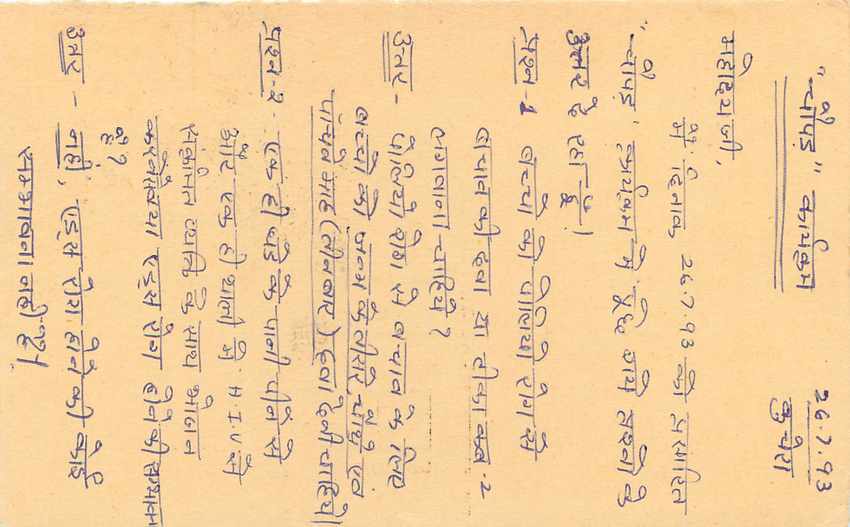 26.7.93
कुचेरा
"चौपड़" कार्यक्रम
महोदय जी,
मैं दिनांक 26.7.93 को प्रसारित
"चौपड़" कार्यक्रम में पूछे गये प्रश्नो के
उत्तर दे रहा हूँ।
प्रश्न-1 बच्चो को पोलियो रोग से
बचाव की दवा या टीका कब-2
लगवाना चाहिये?
उत्तर - पोलियो रोग से बचाव के लिए
बच्चो को जन्म के तीसरे, चौथे एवं
पाँचवे माह (तीन बार) दवा देनी चाहिये।
प्रश्न-2 - एक ही घडे के पानी पीने से
और एक ही थाली मे H.I.V से
संक्रमित व्यक्ति के साथ भोजन
करने से क्या एड्स रोग होने की सम्भावना
है?
उत्तर - नहीं, एड्स रोग होने की कोई
सम्भावना नही है।